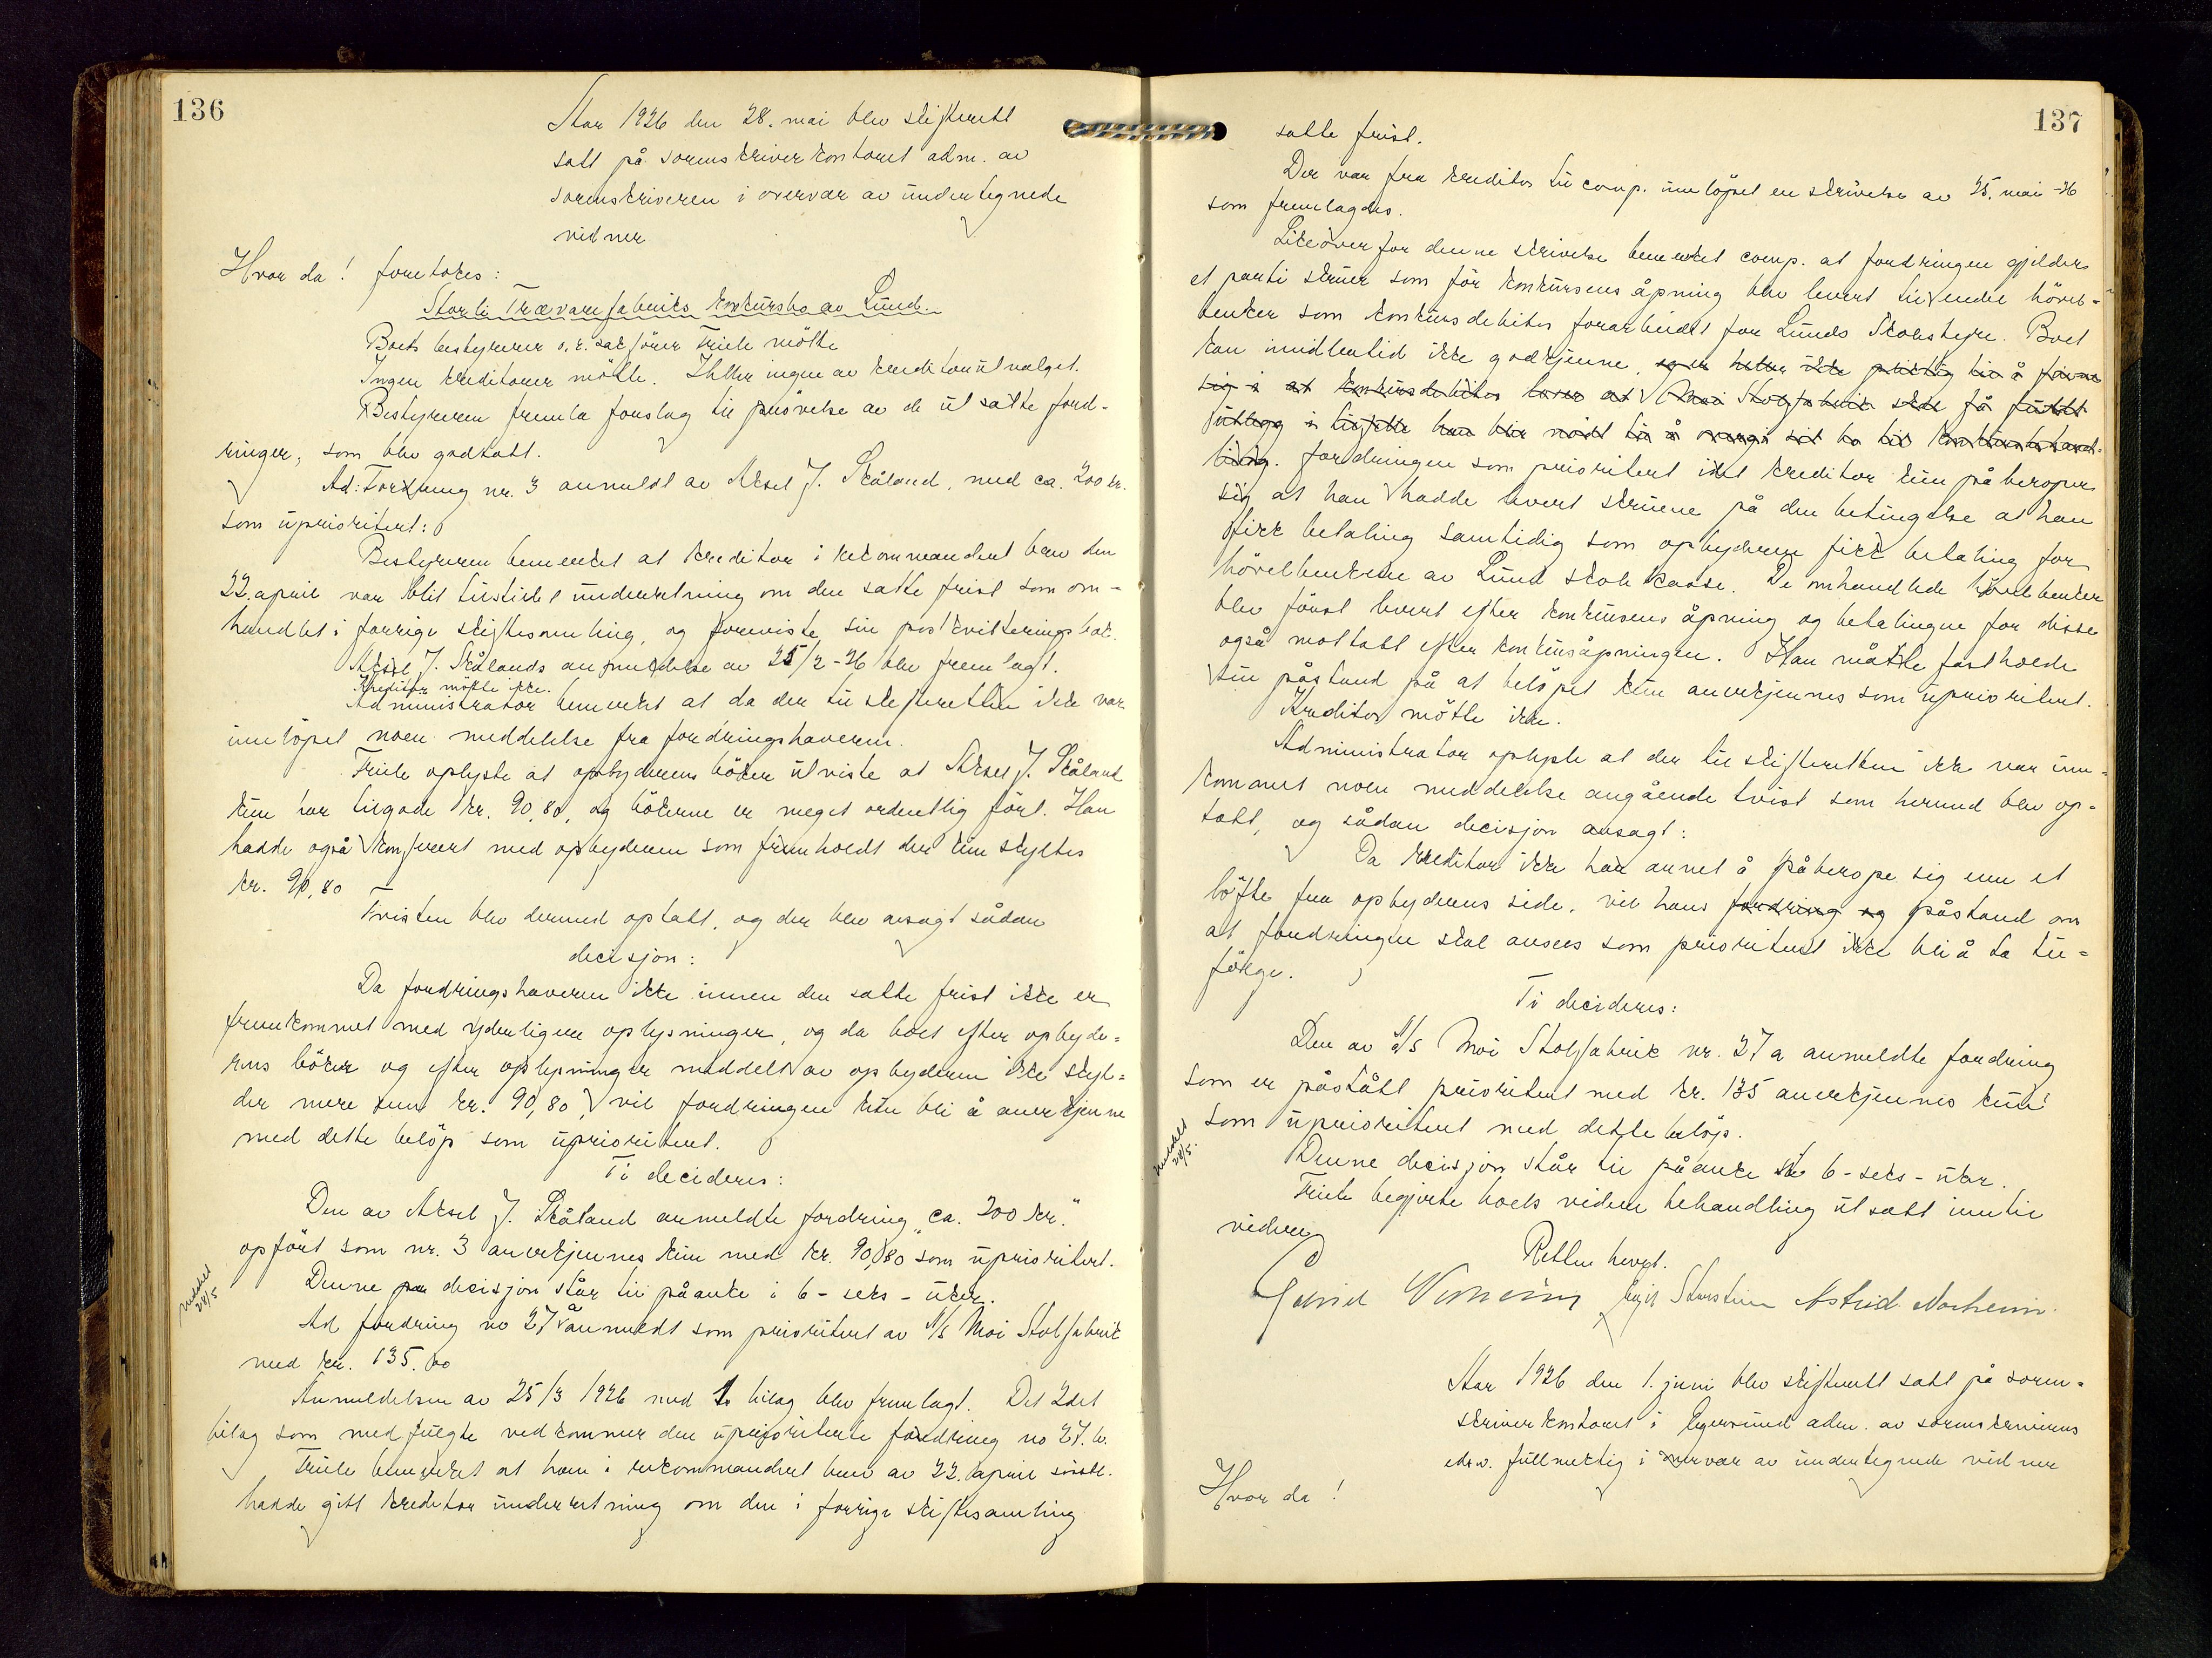 136
Aar 1926 den 28. mai blev skifterett
satt på sorenskriverkontoret adm. av
sorenskriveren i overvær av undertegnede
vidner
Hvor da! foretokes:
Storli Trævarefabriks konkursbo av Lund.
Boets bestyrerer o.r.sakfører Friele møtte
Ingen kreditorer møtte. Heller ingen av kreditorutvalget.
Bestyreren fremla forslag til prøvelse av de utsatte ford-
ringer, som blev godtatt.
Ad: Fordring nr. 3 anmeldt av Aksel J. Skåland, med ca. 200 kr.
som uprioritert:
Bestyreren bemerket at kreditor i rekommandert brev den
22. april var blit tilstillet underretning om den satte frist som om-
handlet i forrige skiftesamling, og foreviste sin postkvitteringsbok.
Aksel J. Skålands anmeldelse av 25/2-26 blev fremlagt.
Kreditor møtte ikke.
Administrator bemerket at da der til skifteretten ikke var
innløpet noen meddelelse fra fordringshaveren.
Friele oplyste at opbyderens bøker utviste at Aksel J. Skåland
kun har tilgode kr. 90,80, og bøkerne er meget ordentlig ført. Han
hadde også konferert med opbyderen som fremholdt der kun skyltes
kr. 90,80
Tvisten blev dermed optatt, og der blev avsagt sådan
decisjon:
Da fordringshaveren ikke innen den satte frist ikke er
fremkommet med yderligere oplysninger, og da boet efter opbyde-
rens bøker og efter oplysninger meddelt av opbyderen ikke skyl-
der mere enn kr. 90,80, vil fordringen kun bli å anerkjenne
med dette beløp som uprioritert.
Ti decideres:
Den av Aksel J. Skåland anmeldte fordring "ca. 200 kr."
opført som nr. 3 anerkjennes kun med kr. 90,80 som uprioritert.
Denne decisjon står til påanke i 6 - seks - uker.
meddelt
28/5
Ad fordring no 27a anmeldt som prioritert av A/s Moi Stolfabrik
med kr. 135.00
Anmeldelsen av 25/3 1926 med 1 bilag blev fremlagt. Det 2det
bilag som medfulgte vedkommer den uprioriterte fordring no 27.b.
Friele bemerket at han i rekommandert brev av 22. april sistl.
hadde gitt kreditor underretning om den i forrige skiftesamling
137
satte frist.
Der var fra kreditor til comp. innløpet en skrivelse av 25. mai -26
som fremlagdes.
Likeoverfor denne skrivelse bemerket comp. at fordringen gjelder
et parti skruer som før konkursens åpning blev levert til endel høvel-
benker som konkursdebitor forarbeidet for Lunds Skolestyre. Boet
kan imidlertid ikke godkjenne, og er heller ikke pliktig til å finne
sig i at konkursdebitor lover at Moi Stolfabrik skal få fullt
utlegg i tilfelle han blir nødt til å overgi sit bo til konkursbehand-
ling. fordringen som prioritert idet kreditor kun påberoper
sig at han hadde levert skruene på den betingelse at han
fikk betaling samtidig som opbyderen fikk betaling for
høvelbenkene av Lund skolekasse. De omhandlede høvelbenker
blev først levert efter konkursens åpning og betalingen for disse
også mottatt efter konkursåpningen. Han måtte fastholde
sin påstand på at beløpet kun anerkjennes som uprioritert.
Kreditor møtte ikke.
Administrator oplyste at der til skifteretten ikke var inn-
kommet noen meddelelse angående tvist som hermed blev op-
tatt, og sådan decisjon avsagt:
Da kreditor ikke har annet å påberope sig enn et
løfte fra opbyderens side, vil hans fordring og påstand om
at fordringen skal ansees som prioritert ikke bli å ta til-
følge.
Ti decideres:
Den av A/s Moi Stolfabrik nr. 27a anmeldte fordring
som er påstått prioritert med kr. 135 anerkjennes kun
som uprioritert med dette beløp.
meddelt
28/5.
Denne decisjon står til påanke i 6 - seks - uker.
Friele begjærte boets videre behandling utsatt inntil
videre
Retten hevet.
Astrid Norheim.
Aar 1926 den 1. juni blev skifterett satt på soren-
skriverkontoret i Egersund adm. av sorenskriverens
edsv. fullmektig i overvær av undertegnede vidner
Hvor da!